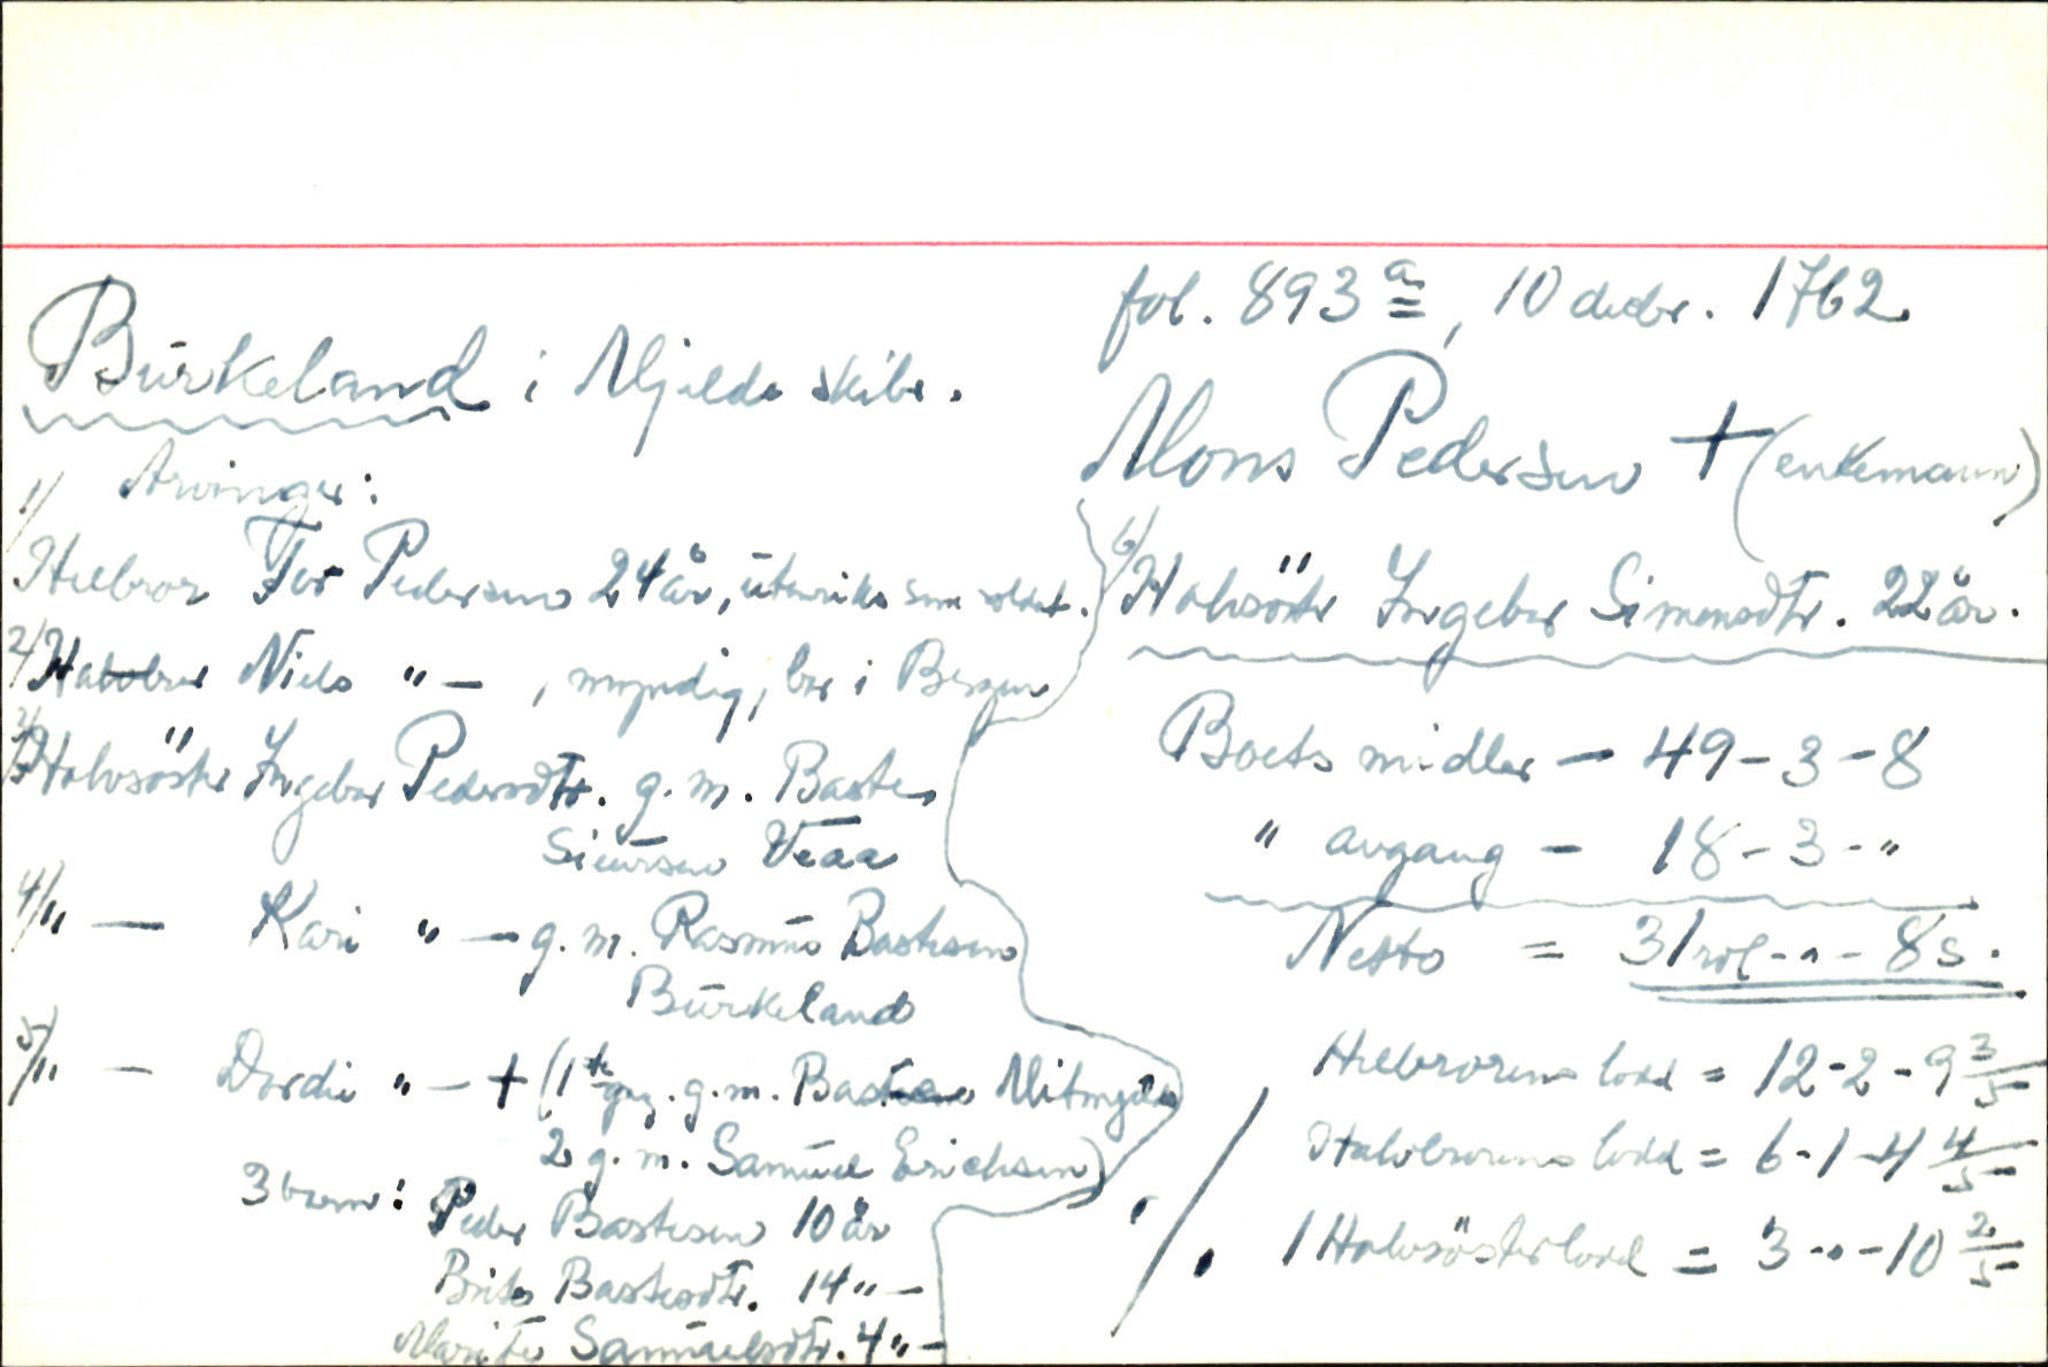 fol. 893 a, 10 decbr. 1762.
Burkeland i Mjelde skibr.
Mons Pedersen † (enkemann)
Arvinger:
1/ Helbror Tor Pedersen 24 år, utenriks som soldat.
2/ Halvbror Niels "—, myndig, bor i Bergen
3/ Halvsöster Ingebor Pedersdtr. g. m. Baste
Siursen Veaa
4/ " — Kari "— g. m. Rasmus Bastesen
Burkeland
5/ " — Dordie "— † (1ste g. g. m. Baste Mitmyûs
2 g. m. Samuel Erichsen)
3 barn: Peder Bastesen 10 år
Brita Bastesdtr. 14 "—
Marite Samuelsdtr. 4 "—
6/ Halvsöster Ingebor Simonsdtr. 22 år.
Boets midler — 49 - 3 - 8
" avgang — 18 - 3 - "
Netto = 31 rdl - " - 8 s.
Helbrorens lodd = 12 - 2 - 9 3/5
Halvbrorens lodd = 6 - 1 - 4 4/5
1 Halvsösterlodd = 3 - " - 10 2/5